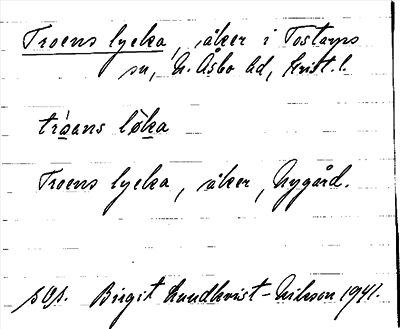 Troens lycka, åker i Tostarps
sn, N. Åsbo hd, Krist. l.
tråans løka
Troens lycka, åker, Nygård.
s Op. Birgit Lundkvist-Nilsson 1941.